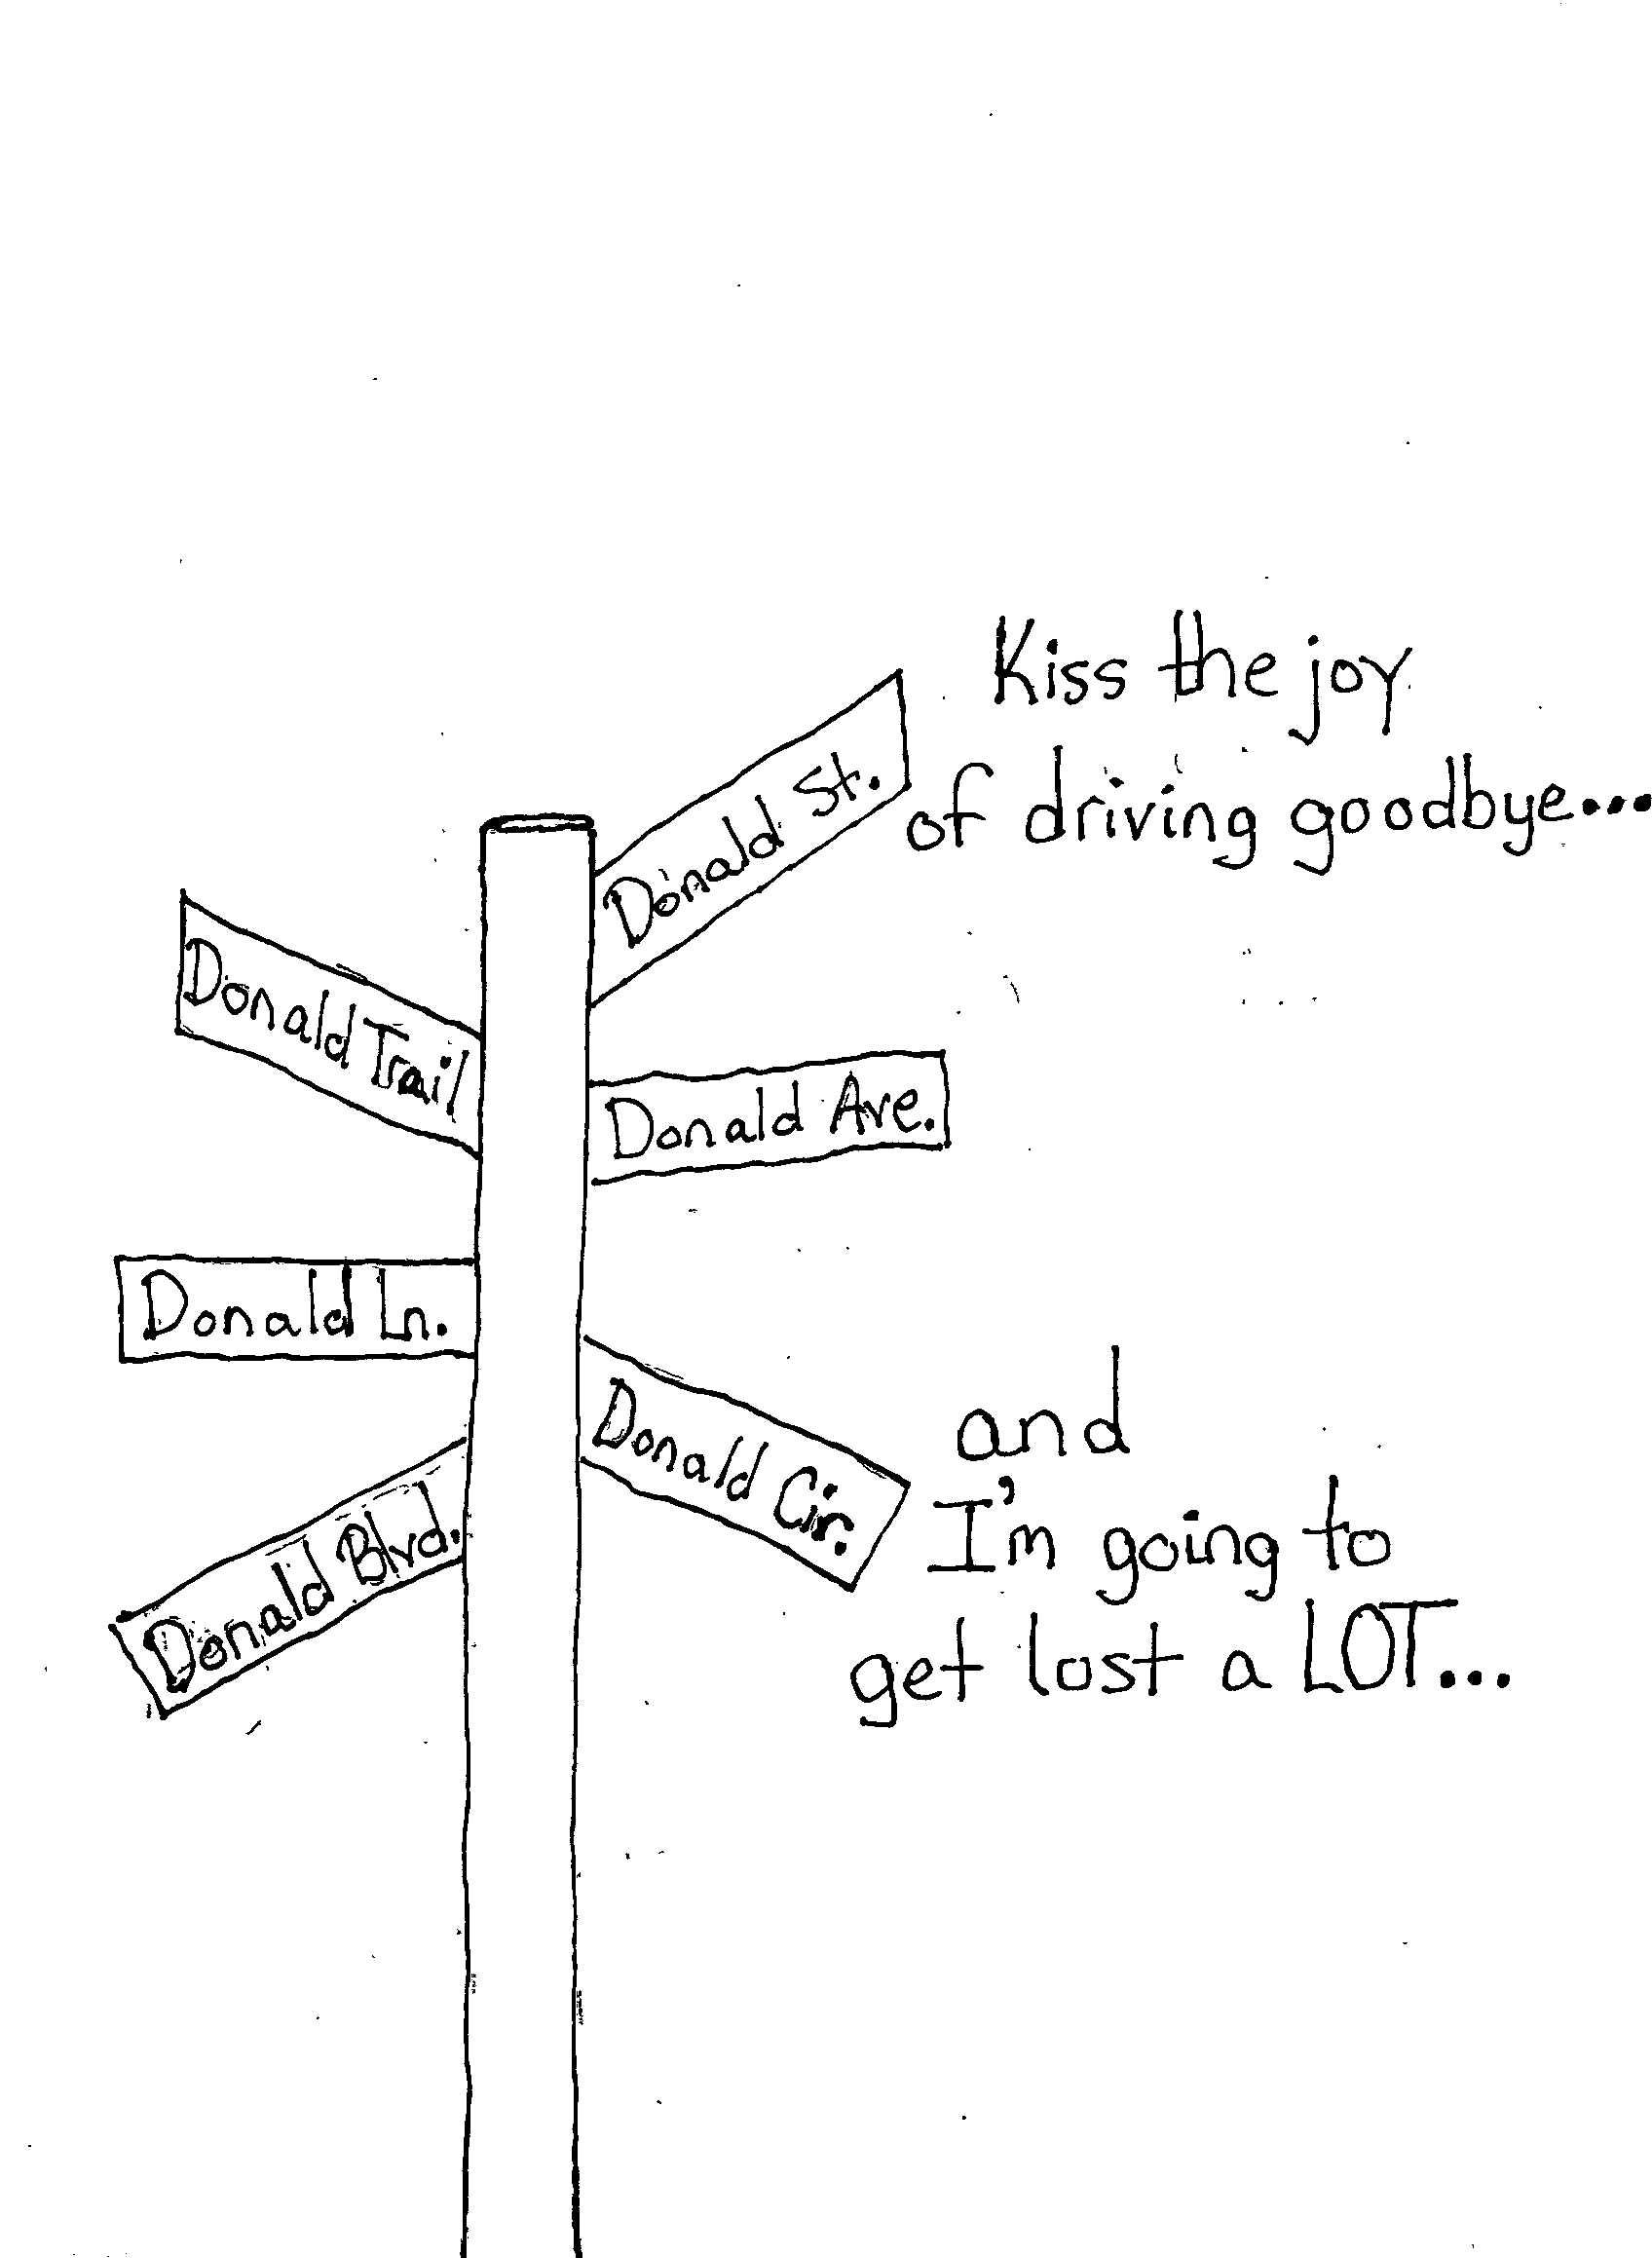 Kiss the joy
of driving goodbye...
Donald St.
Donald Trail
Donald Ave.
Donald Ln.
Donald Cir.
Donald Blvd.
and
I'm going to
get lost a LOT...